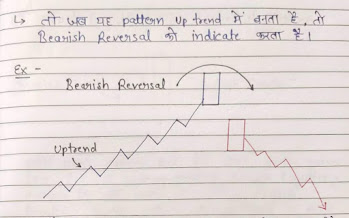 ↳ तो जब यह pattern Up trend में बनता है, तो
Bearish Reversal को indicate करता है।
Ex -
Bearish Reversal
Uptrend